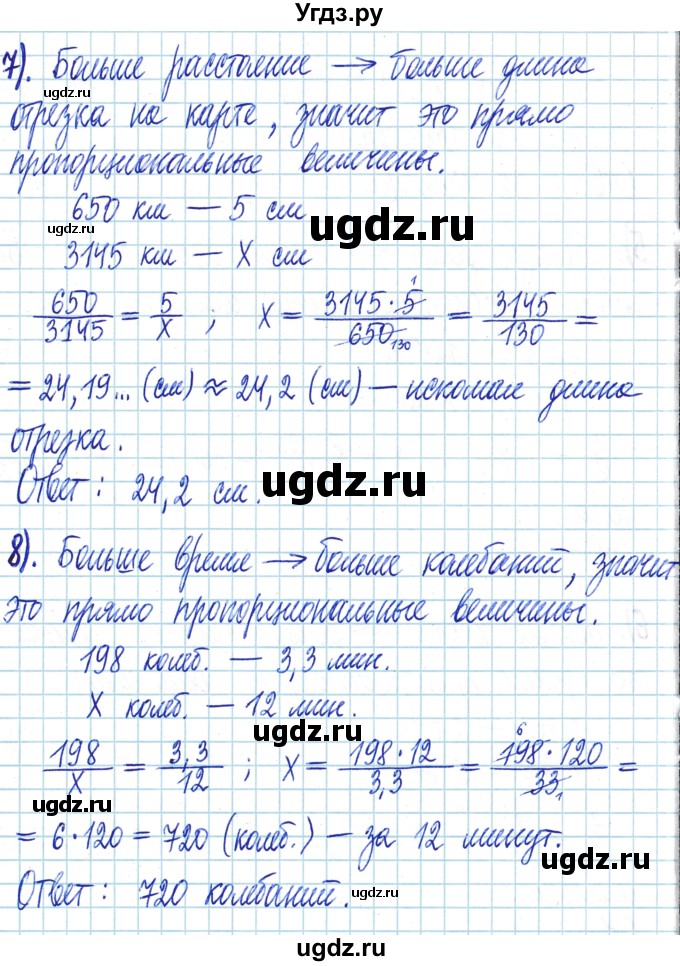 Угдз.ру
7). Больше расстояние → больше длина
отрезка на карте, значит это прямо
пропорциональные величины.
650 км — 5 см
ugdz.ru
3145 км — X см
650/3145 = 5/X ; X = 3145·5/650 = 3145/130 =
1
130
ugdz.ru
= 24,19... (см) ≈ 24,2 (см) — искомая длина
ugdz.ru
отрезка.
Ответ: 24,2 см.
ugdz.ru
8). Больше время → больше колебаний, значит
это прямо пропорциональные величины.
ugdz.ru
198 колеб. — 3,3 мин.
X колеб. — 12 мин.
ugdz.ru
198/X = 3,3/12 ; X = 198·12/3,3 = 198·120/33 =
6
1
ugdz.ru
= 6·120 = 720 (колеб.) — за 12 минут.
ugdz.ru
Ответ: 720 колебаний.
ugdz.ru
ugdz.ru